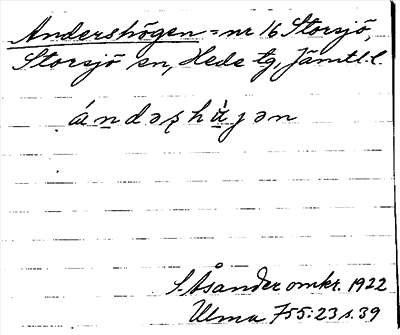 Andershögen = nr 16 Storsjö,
Storsjö sn, Hede tg, Jämtl. l.
ándəʂhù̱jən
S. Åsander omkr. 1922
Ulma 755:23 s. 39